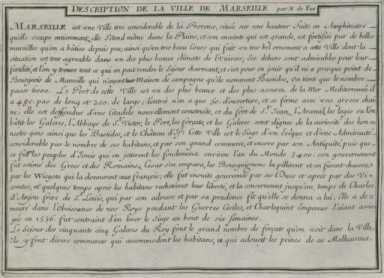 DESCRIPTION DE LA VILLE DE MARSEILLE par N. de Fer
MARSEILLE est une Ville tres considerable de la Provence, située sur une hauteur faite en Amphiteatre
qu'elle occupe entierement, elle s'étend même dans la Plaine, et son enceinte qui est grande, est fortifiée par de belles
murailles qu'on a bâties depuis peu, ainsi qu'un tres beau Cours qui fait un tres bel ornement a cette Ville dont la
situation est tres agreable dans un des plus beaux climats de l'univers, ses dehors sont admirables pour leur
Bourgeois de Marseille qui n'ayent leur Maison de campagne qu'ils nomment Bastides, on tient que le nombre
passe Le Port de cette Ville est un des plus beaux et des plus assurés de la Mer Mediterranée il
a 480. pas de long et 250. de large; l'entrée n'en a que d'ouverture, et se ferme avec une grosse chaine
elle est deffendue d'une Citadelle nouvellement construite, et du fort de St. Jean, L'Arsenal, les loges ou l'on
bâtit les Galeres, L'Abbaye de St. Victor, le Port, les forçats, et les Galeres sont dignes de la curiosité des
ainsi que les Bastides, et le Château d'If. Cette Ville est le Siege d'un Evêque et d'une Admirauté
considerable par le nombre de ses habitans, et par son grand commerce, et encore par son Antiquité, puis que
les peuples d'Ionie qui en jetterent les fondemens environ l'an du Monde 3400; son gouvernement
fut estimé des Grecs et des Romains, Cesar s'en empara, les Bourguignons la pillerent, et en furent chassez
par les Wisigots qui la donnerent aux françois; elle fut ensuite gouvernée par ses Ducs et aprés par des Vi-
comtes, et quelques temps aprés les habitans racheterent leur liberté, et la conserverent jusqu'au temps de Charles
d'Anjou frere de St. Louis, qui par son adresse et par sa prudence fit qu'elle se donna a lui. Elle a de-
meuré dans l'obeissance de nos Roys pendant les Guerres Civiles, et Charlequint Empereur l'aiant assie-
gée en 1536 fut contraint d'en lever le Siege au bout de six semaines.
Le sejour des vingt cinq Galeres du Roy joint le grand nombre de forçats qu'on voit dans la Ville,
ils y font divers commerces qui accommodent les habitans, et qui adoucit les peines de ces Malheureux.